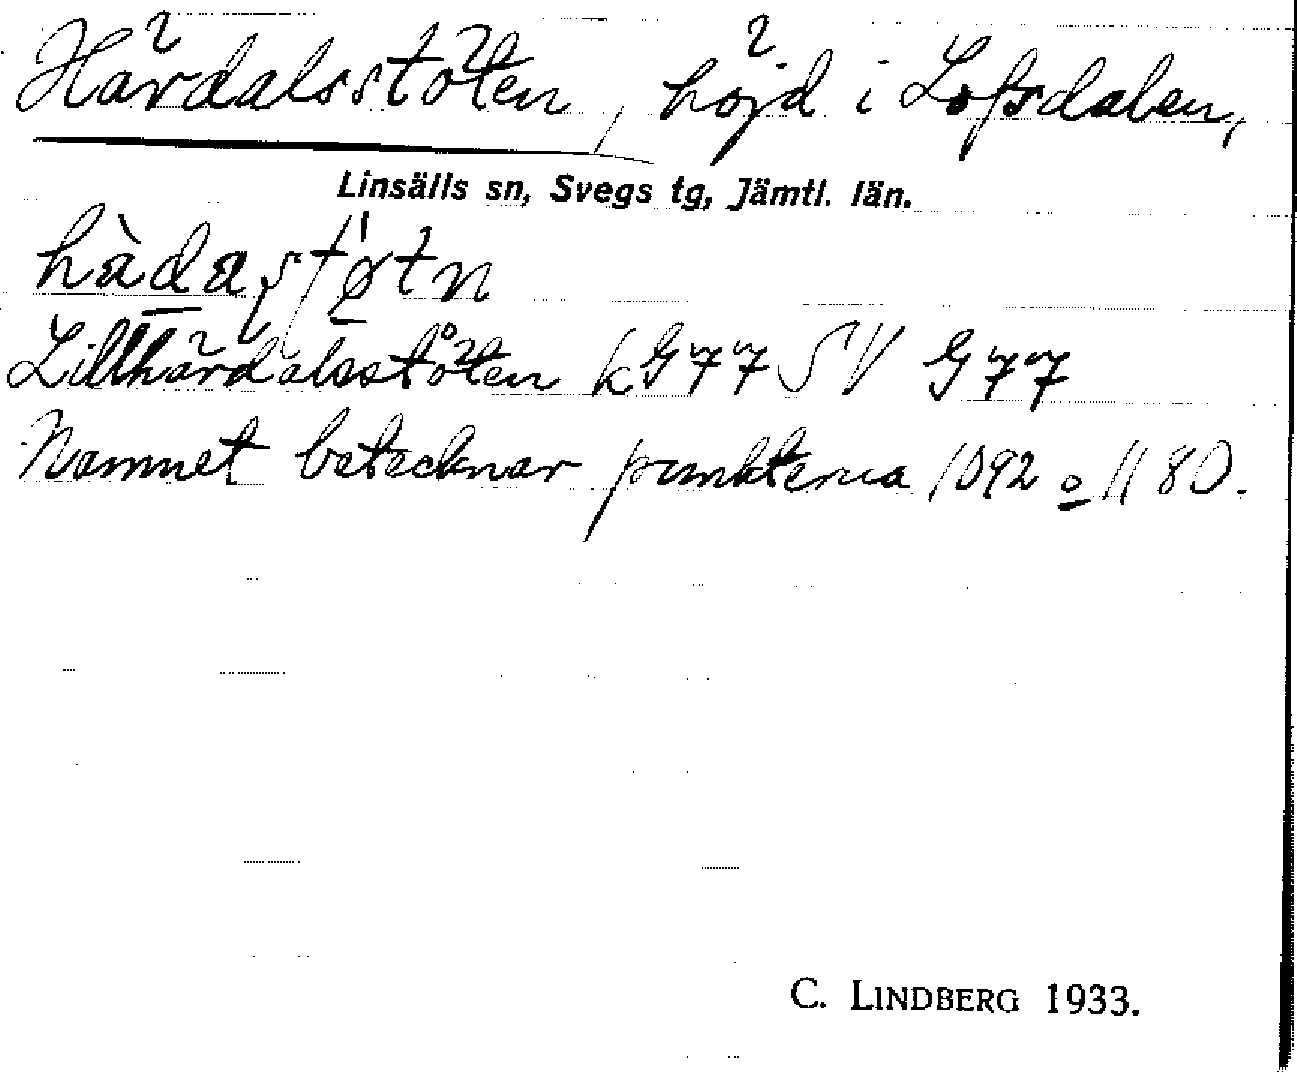 Härdalsstöten, höjd i Lofsdalen,
Linsälls sn, Svegs tg, Jämtl. län.
hàdaʂtøtn
Lillhärdalsstöten kG77 SV G77
Namnet betecknar punkterna 1092 o 1180.
C. LINDBERG 1933.